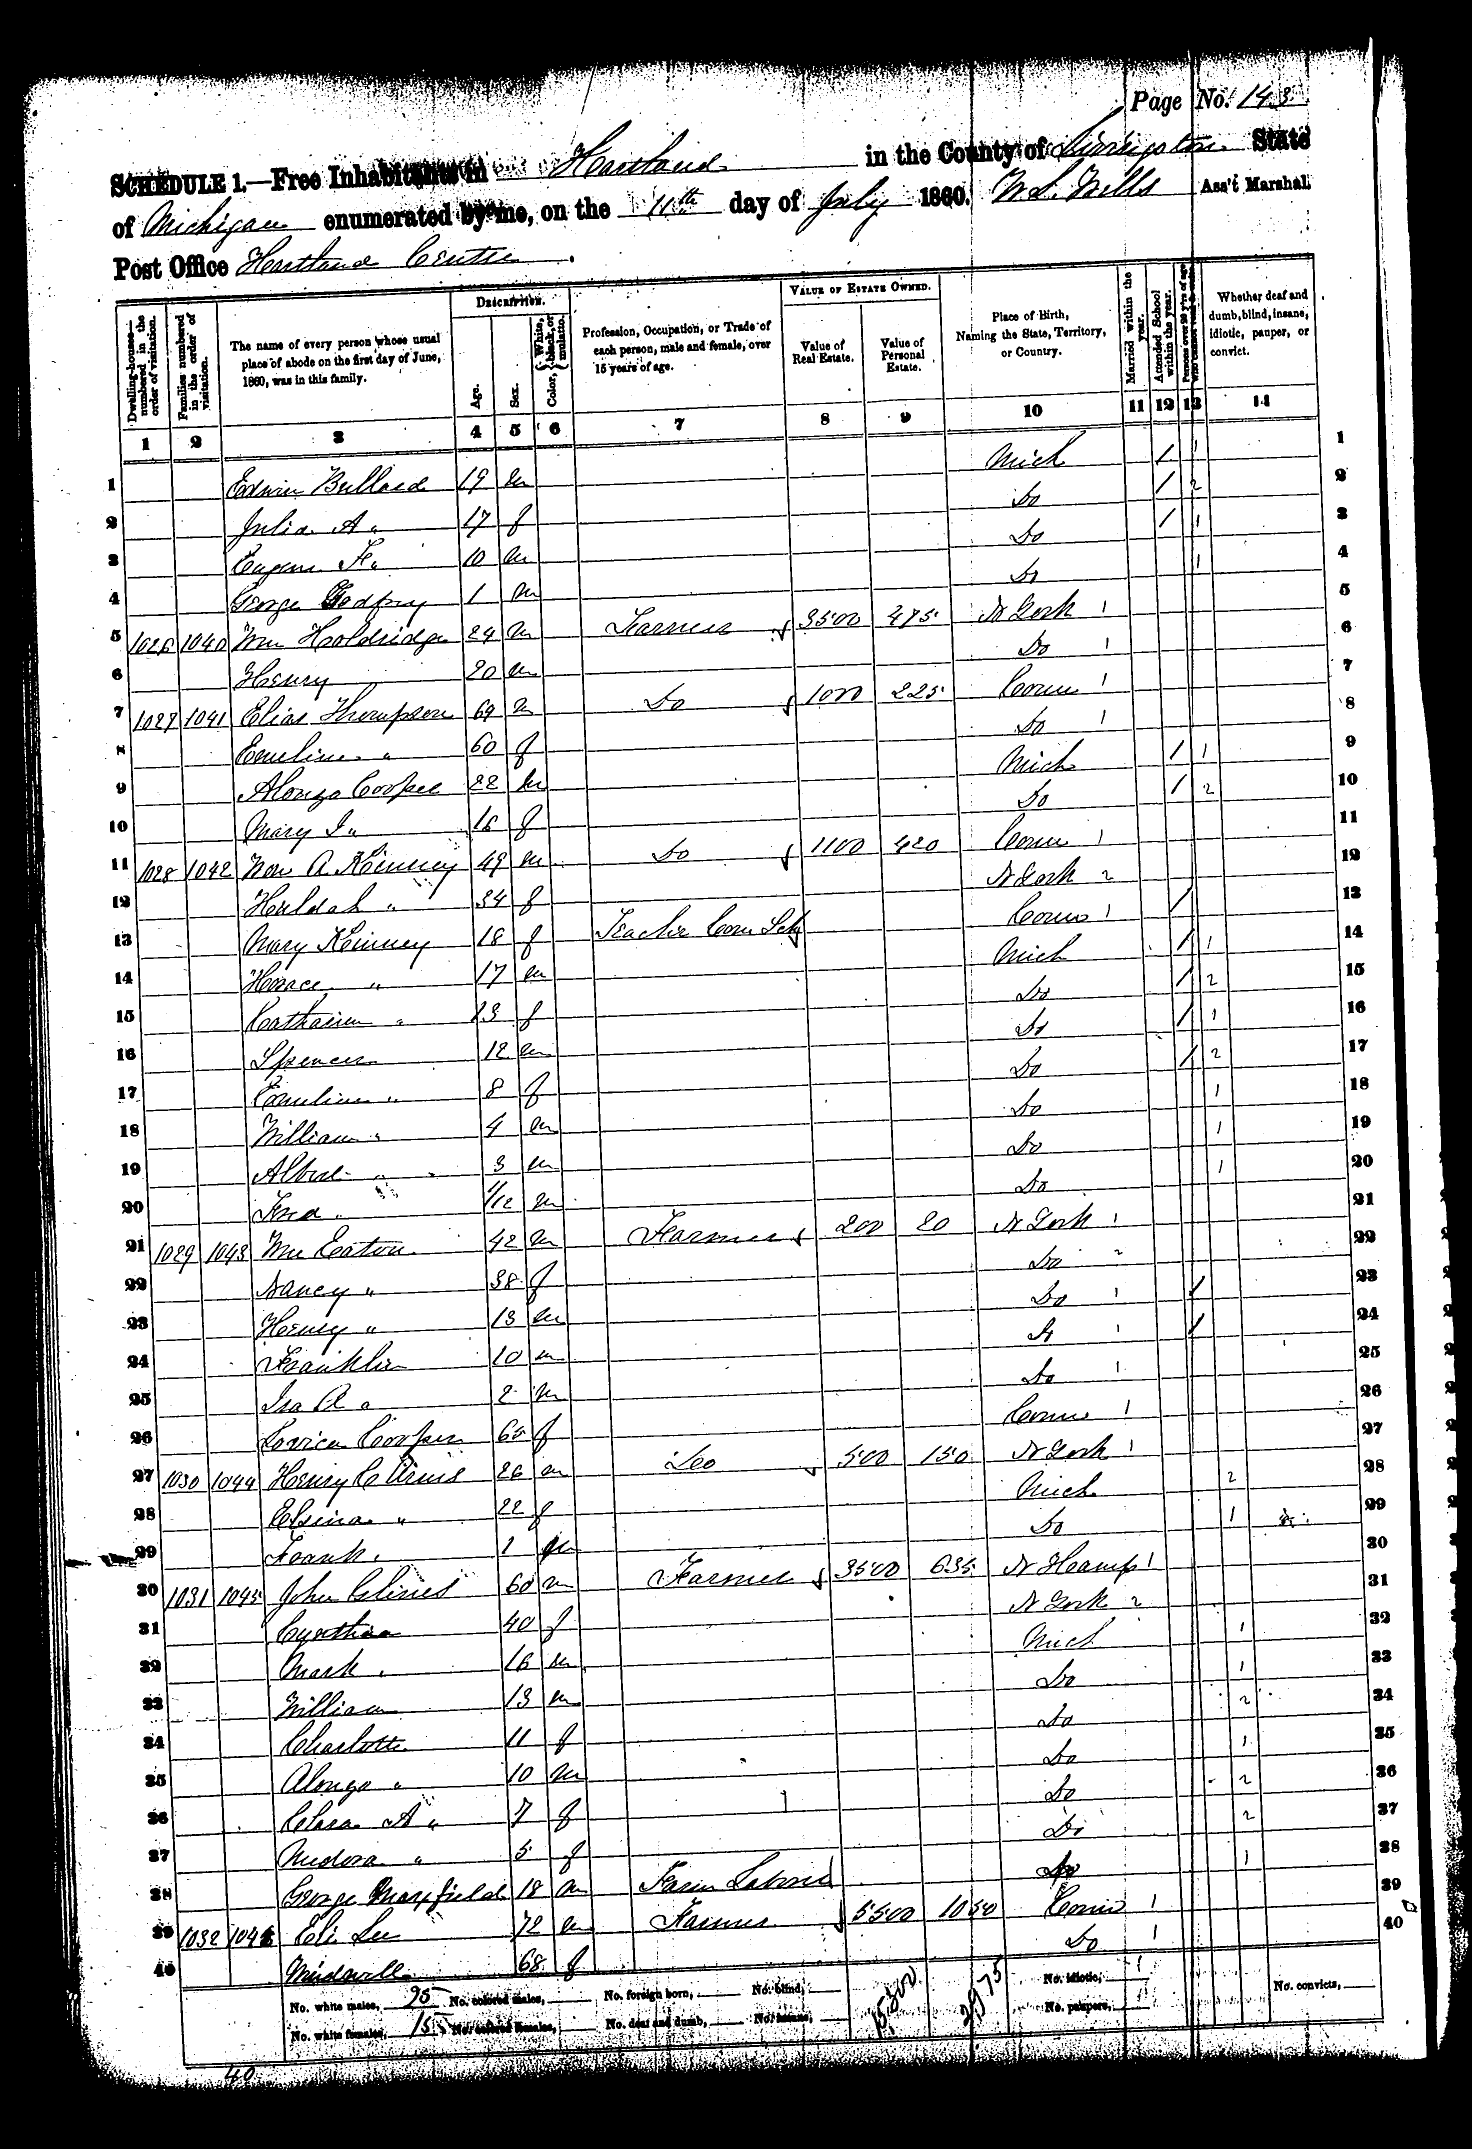 Page No. 143
SCHEDULE 1.—Free Inhabitants in Hartland in the County of Livingston State
of Michigan enumerated by me, on the 11th day of July 1860. W. S. Wells Ass't Marshal.
Post Office Hartland Centre.
Dwelling-houses—numbered in the order of visitation.
Families numbered in the order of visitation.
The name of every person whose usual place of abode on the first day of June, 1860, was in this family.
DESCRIPTION.
Age.
Sex.
Color, White, black, or mulatto.
Profession, Occupation, or Trade of each person, male and female, over 15 years of age.
VALUE OF ESTATE OWNED.
Value of Real Estate.
Value of Personal Estate.
Place of Birth, Naming the State, Territory, or Country.
Married within the year.
Attended School within the year.
Persons over 20 y'rs of age who cannot read & write.
Whether deaf and dumb, blind, insane, idiotic, pauper, or convict.
1 2 3 4 5 6 7 8 9 10 11 12 13 14
1 Edwin Bullard 19 m Mich / 1 1
2 Julia A " 17 f Do / 2 2
3 Eugene F " 10 m Do / 1 3
4 George Godfrey 1 m Do 1 4
5 1026 1040 Wm Holdridge 24 m Farmer 3500 475 N York 1 5
6 Henry 20 m Do 1 6
7 1027 1041 Elias Thompson 69 m Do 1000 225 Conn 1 7
8 Emeline " 60 f Do 1 8
9 Alonzo Cooper 22 m Mich / 1 9
10 Mary J " 16 f Do / 2 10
11 1028 1042 Wm A. Kinney 49 m Do 1100 420 Conn 1 11
12 Huldah " 34 f N York 2 12
13 Mary Kinney 18 f Teacher Com Sch Conn 1 / 13
14 Horace " 17 m Mich / 1 14
15 Catharine " 13 f Do / 2 15
16 Spencer 12 m Do / 1 16
17 Emeline " 8 f Do / 2 17
18 William " 4 m Do 1 18
19 Albert " 3 m Do 1 19
20 Fred " 1/12 m Do 1 20
21 1029 1043 Wm Eaton 42 m Farmer 200 20 N York 1 21
22 Nancy " 38 f Do 2 22
23 Henry " 13 m Do 1 / 23
24 Franklin 10 m Do 1 / 24
25 Isa A " 2 m Do 1 25
26 Lovica Cooper 65 f Conn 1 26
27 1030 1044 Henry C Arms 26 m Do 500 150 N York 1 27
28 Elsina " 22 f Mich 2 28
29 Frank " 1 m Do 1 29
30 1031 1045 John Clines 60 m Farmer 3500 635 N Hamp 1 30
31 Cynthia 40 f N York 2 31
32 Mark " 16 m Mich 1 32
33 William 13 m Do 1 33
34 Charlotte 11 f Do 2 34
35 Alonzo " 10 m Do 1 35
36 Clara A " 7 f Do 2 36
37 Medora " 5 f Do 2 37
38 George Maxfield 18 m Farm Labore Do 1 38
39 1032 1046 Eli Lee 72 m Farmer 5500 1050 Conn 1 39
40 68 f Do 1 40
No. white males, 25 No. colored males, No. foreign born, No. blind, 15,300 2975 No. idiotic, No. convicts,
No. white females, 15 No. colored females, No. deaf and dumb, No. insane, No. paupers,
40